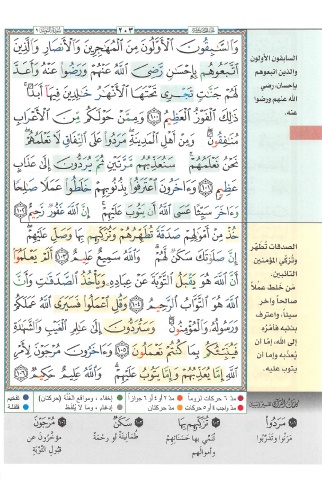 ٢٠٣
وَالسَّابِقُونَ الْأَوَّلُونَ مِنَ الْمُهَاجِرِينَ وَالْأَنصَارِ وَالَّذِينَ
اتَّبَعُوهُم بِإِحْسَانٍ رَّضِيَ اللَّهُ عَنْهُمْ وَرَضُوا عَنْهُ وَأَعَدَّ
لَهُمْ جَنَّاتٍ تَجْرِي تَحْتَهَا الْأَنْهَارُ خَالِدِينَ فِيهَا أَبَدًا
ذَٰلِكَ الْفَوْزُ الْعَظِيمُ ١٠٠ وَمِمَّنْ حَوْلَكُم مِّنَ الْأَعْرَابِ
مُنَافِقُونَ وَمِنْ أَهْلِ الْمَدِينَةِ مَرَدُوا عَلَى النِّفَاقِ لَا تَعْلَمُهُمْ
نَحْنُ نَعْلَمُهُمْ سَنُعَذِّبُهُم مَّرَّتَيْنِ ثُمَّ يُرَدُّونَ إِلَىٰ عَذَابٍ
عَظِيمٍ ١٠١ وَآخَرُونَ اعْتَرَفُوا بِذُنُوبِهِمْ خَلَطُوا عَمَلًا صَالِحًا
وَآخَرَ سَيِّئًا عَسَى اللَّهُ أَن يَتُوبَ عَلَيْهِمْ إِنَّ اللَّهَ غَفُورٌ رَّحِيمٌ ١٠٢
خُذْ مِنْ أَمْوَالِهِمْ صَدَقَةً تُطَهِّرُهُمْ وَتُزَكِّيهِم بِهَا وَصَلِّ عَلَيْهِمْ
إِنَّ صَلَاتَكَ سَكَنٌ لَّهُمْ وَاللَّهُ سَمِيعٌ عَلِيمٌ ١٠٣ أَلَمْ يَعْلَمُوا
أَنَّ اللَّهَ هُوَ يَقْبَلُ التَّوْبَةَ عَنْ عِبَادِهِ وَيَأْخُذُ الصَّدَقَاتِ وَأَنَّ
اللَّهَ هُوَ التَّوَّابُ الرَّحِيمُ ١٠٤ وَقُلِ اعْمَلُوا فَسَيَرَى اللَّهُ عَمَلَكُمْ
وَرَسُولُهُ وَالْمُؤْمِنُونَ وَسَتُرَدُّونَ إِلَىٰ عَالِمِ الْغَيْبِ وَالشَّهَادَةِ
فَيُنَبِّئُكُم بِمَا كُنتُمْ تَعْمَلُونَ ١٠٥ وَآخَرُونَ مُرْجَوْنَ لِأَمْرِ
اللَّهِ إِمَّا يُعَذِّبُهُمْ وَإِمَّا يَتُوبُ عَلَيْهِمْ وَاللَّهُ عَلِيمٌ حَكِيمٌ ١٠٦
السابقون الأولون
والذين اتبعوهم
بإحسان، رضي
الله عنهم ورضوا
عنه.
الصدقات تُطهّر
وتُزكّي المؤمنين
التائبين.
مَن خلط عملاً
صالحاً وآخر
سيئاً، واعترف
بذنبه فأمْرُه
إلى الله، إمّا أن
يُعذّبه وإما أن
يتوب عليه.
مدّ ٦ حركات لزوماً مدّ ٢ أو ٤ أو ٦ جوازاً إخفاء، ومواقع الغُنّة (حركتان) تفخيم
مدّ واجب ٤ أو ٥ حركات مدّ حركتان إدغام، وما لا يُلفظ قلقلة
مَرَدُوا
مَرَنُوا وتَدَرَّبُوا
تُزَكِّيهِم بِهَا
تُنَمِّي بها حَسَنَاتِهِمْ
وأموالَهم
سَكَنٌ
طُمَأْنينة أو رحمة
مُرْجَوْنَ
مُؤَخَّرُونَ عن
قَبُولِ التَّوبَة